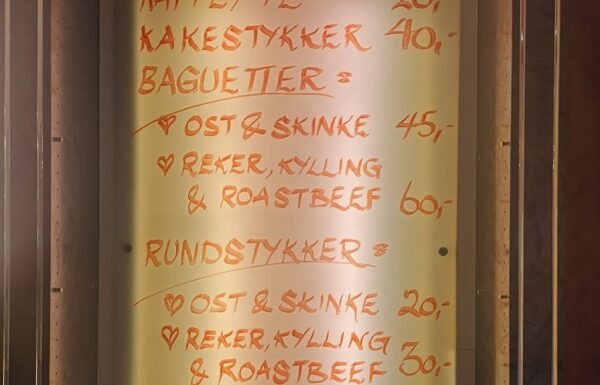 KAFFE/TE 20,-
KAKESTYKKER 40,-
BAGUETTER :
♡ OST & SKINKE 45,-
♡ REKER, KYLLING
& ROASTBEEF 60,-
RUNDSTYKKER :
♡ OST & SKINKE 20,-
♡ REKER, KYLLING
& ROASTBEEF 30,-